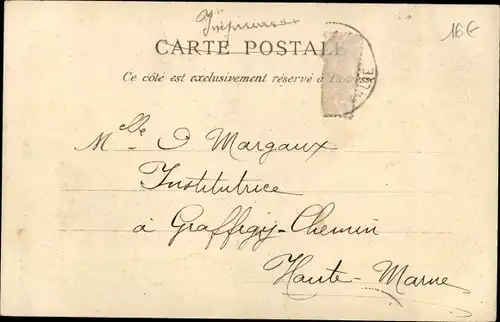 Imprimés
16€
CARTE POSTALE
Ce côté est exclusivement réservé à
Melle D Margaux
Institutrice
à Graffigny-Chemin
Haute-Marne